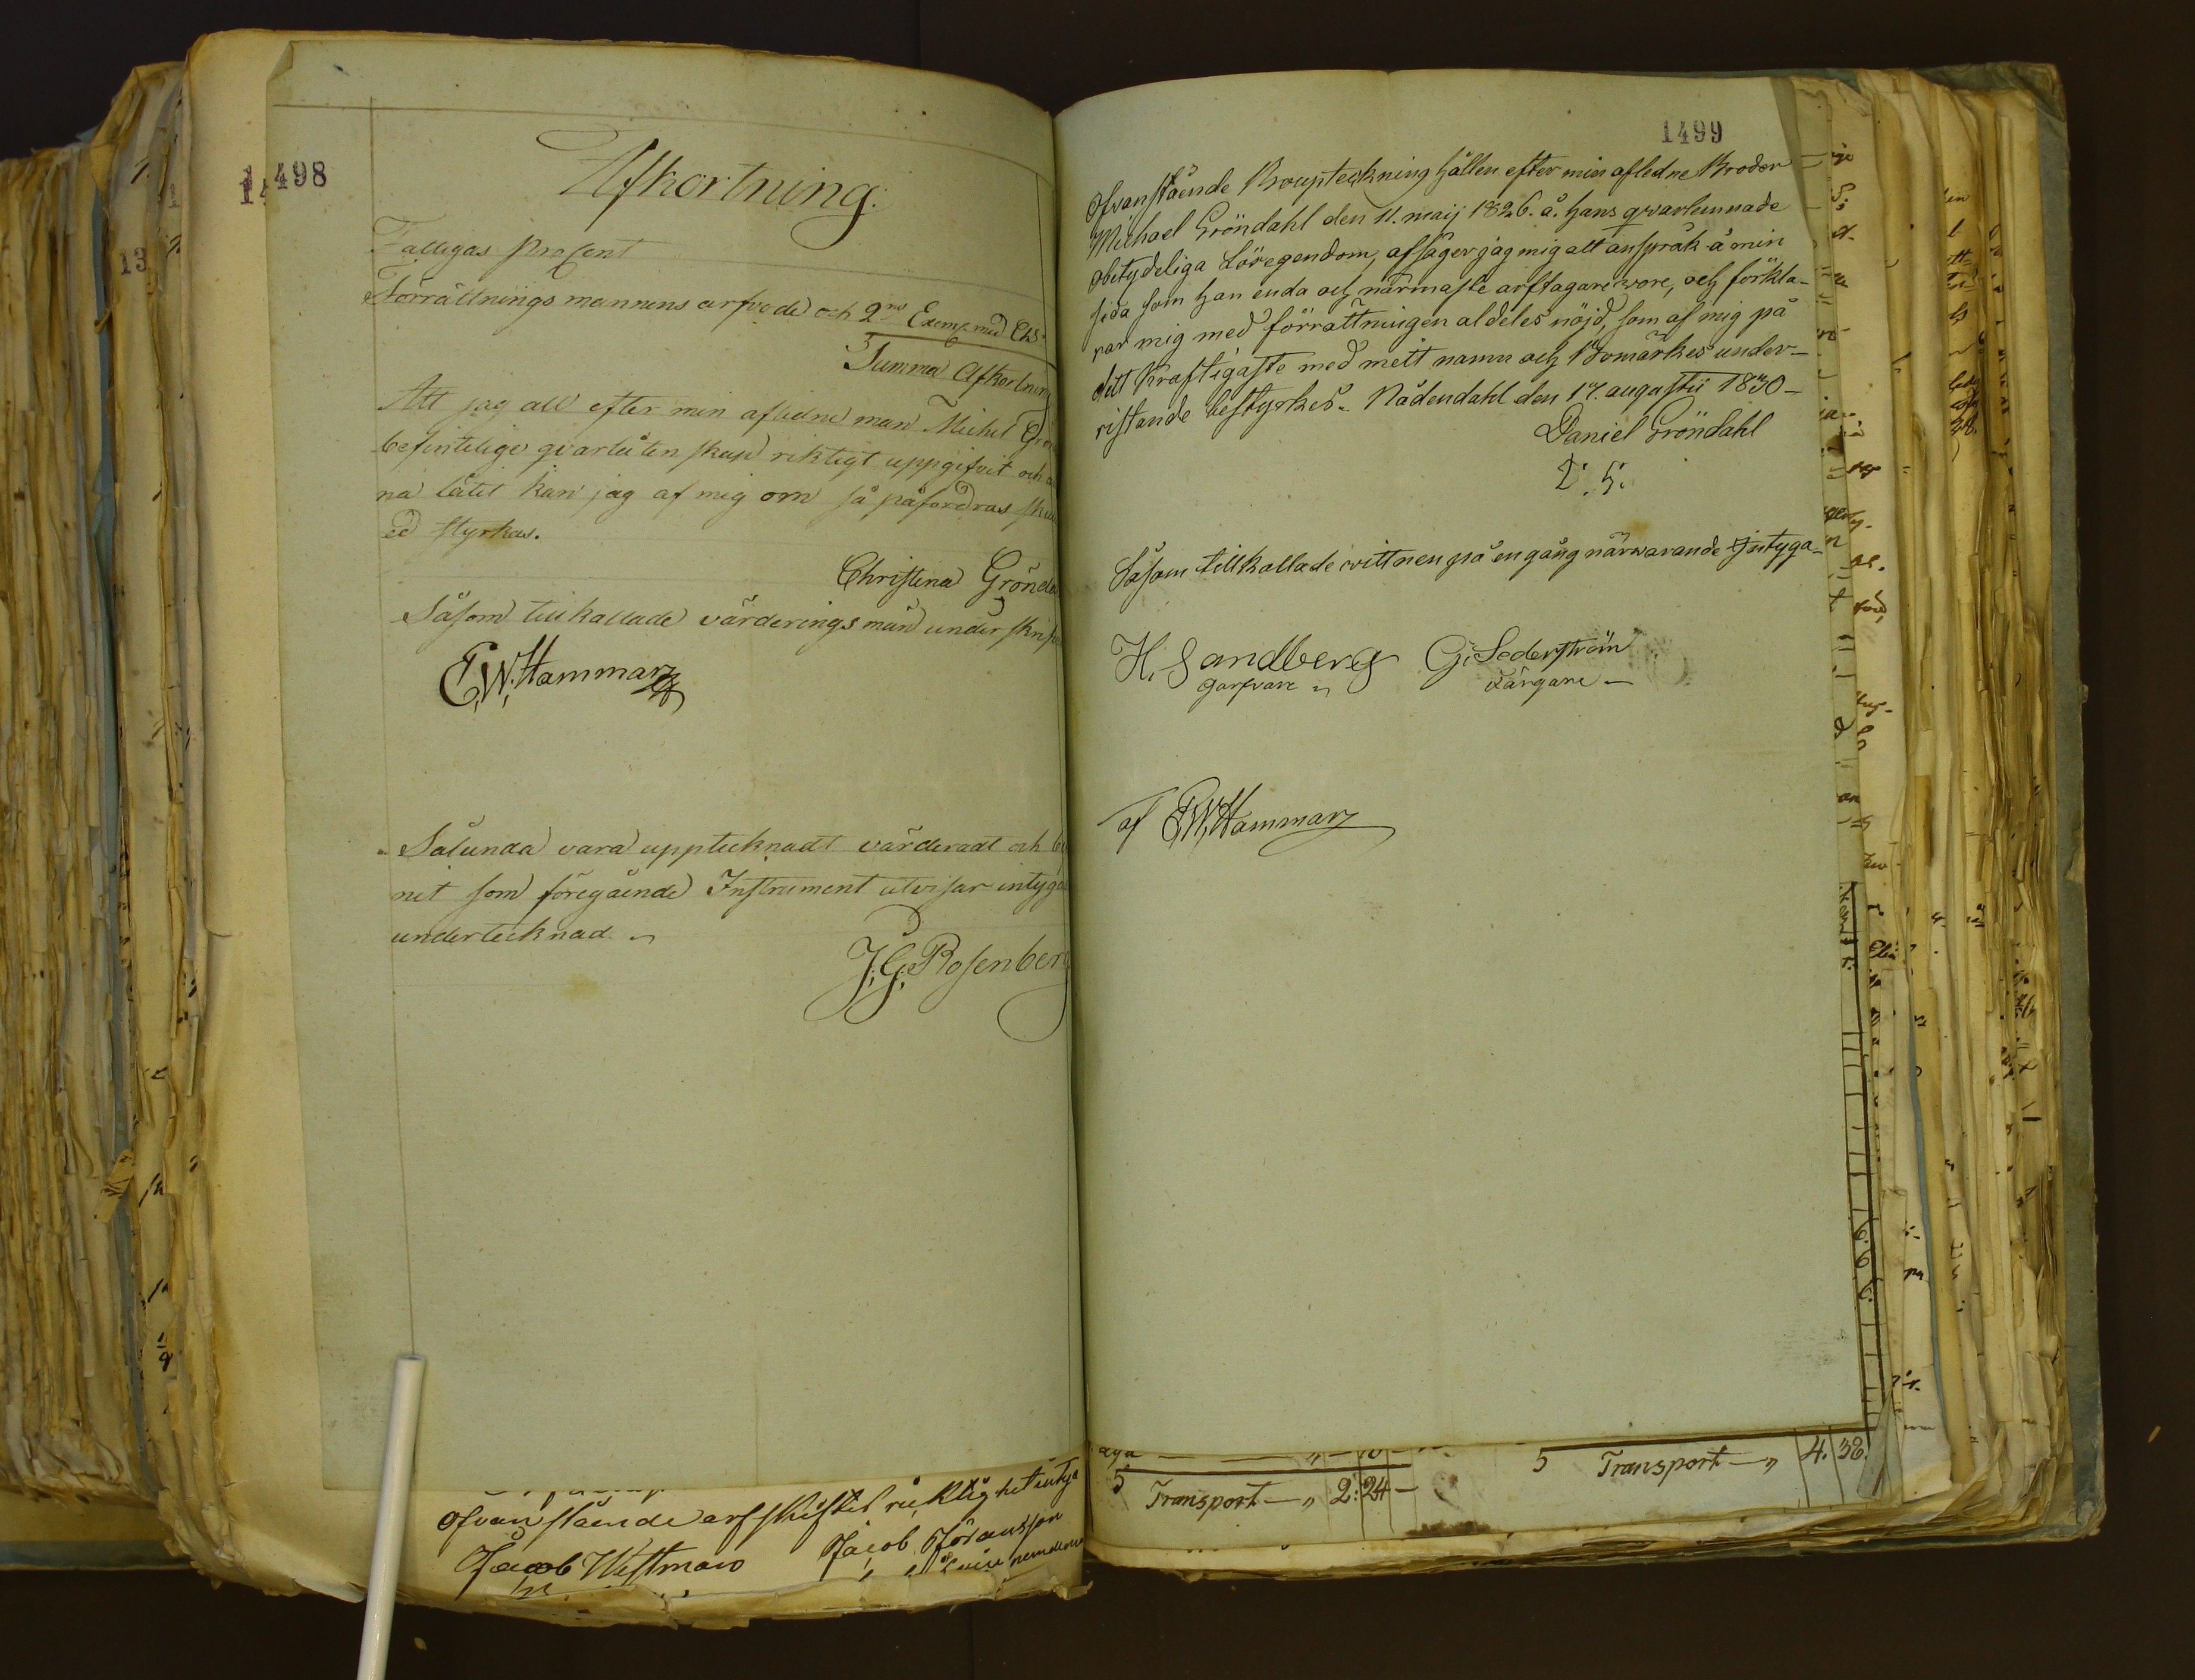 1498
Afkortning.
Fattigas Procent
Förrättnings mannens arfvode och 2ne Exemp. med Chs
Summa Afkortning
Att jag allt efter min afledne man Michel Grön
befintelige qvarlåtenskap riktigt uppgifvit och
na låtit kan jag af mig om så påfordras
ed styrkas.
Christina Gröndа
Såsom tillkallade värderings män underskrif
E. W. Hammarz
Sålunda vara upptecknadt värderadt och be
nit som föregående Instrument utvisar intyga
undertecknad
J. G. Rosenberg
ofvanstående arfskiftes ricktighet intyga
Jacob Westman Jacob Jöransson
1499
Ofvanstående Boupteckning hållen efter min afledne Broder
Michael Gröndahl den 11. maij 1826. å. hans qvarlemnade
obetydeliga Lösegendom, afsäger jag mig alt anspråk å min
sida som han enda och närmaste arftagare wore, och förkla-
rar mig med förrättningen aldeles nöjd, som af mig på
dett Kraftigaste med mett namn och Bomärkes under-
ristande bestyrkes. Nådendahl den 17. augustii 1830-
Daniel Gröndahl
D. G.
Såsom tillkallade wittnen på en gång närwarande Intyga-
H. Sandberg G. Sederström
garfvare Färgare -
af E. W. Hammarz
5 Transport - " 2: 24 -
5 Transport - " 4. 38.